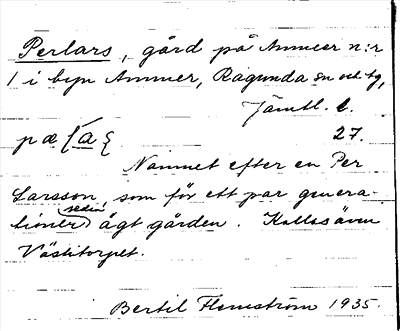 Perlars, gård på Ammer n:r
1 i byn Ammer, Ragunda sn och tg,
Jämtl. l.
27.
Namnet efter en Per
Larsson, som för ett par genera-
tioner sedan ägt gården. Kallas även
Västitorpet.
Bertil Flemström 1935.